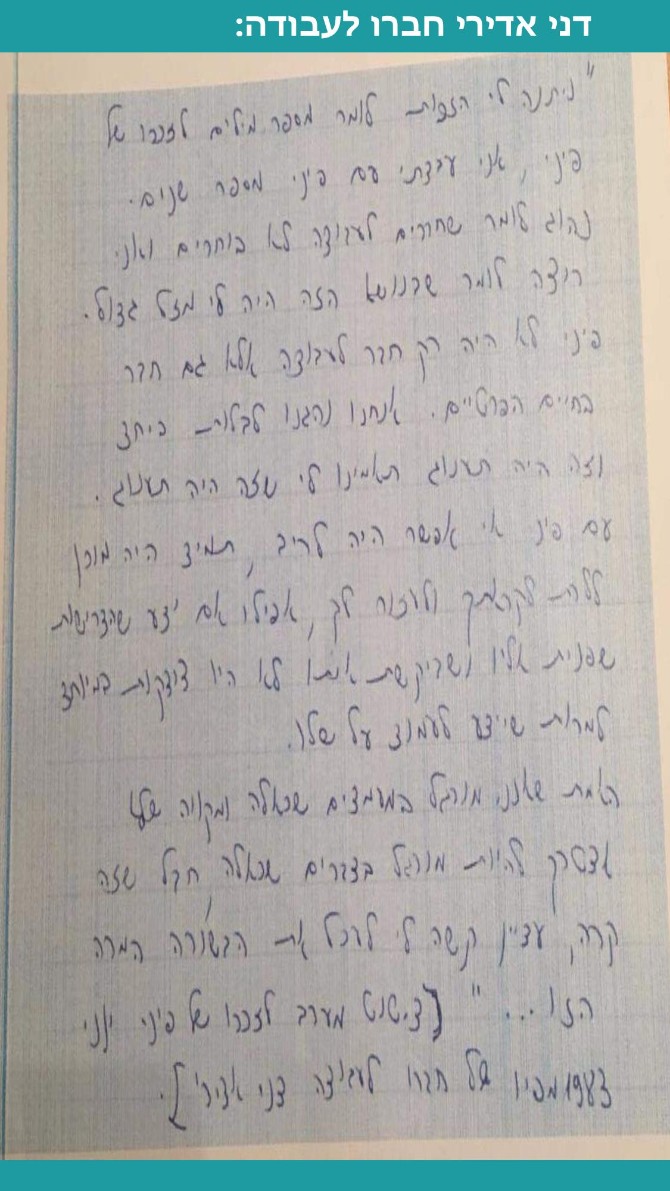 דני אדירי חברו לעבודה:
"ניתנה לי הזכות לומר מספר מילים לזכרו של
פיני, אני עבדתי עם פיני מספר שנים.
נהוג לומר שחברים לעבודה לא בוחרים ואני
רוצה לומר שבנושא הזה היה לי מזל גדול.
פיני לא היה רק חבר לעבודה אלא גם חבר
בחיים הפרטיים. אנחנו נהגנו לבלות ביחד
וזה היה תענוג תאמינו לי שזה היה תענוג.
עם פיני אי אפשר היה לריב, תמיד היה מוכן
ללכת לקראתך ולעזור לך, אפילו אם ידע שהדרישות
שפנית אליו ושביקשת אותו לא היו צודקות במיוחד
למרות שידע לעמוד על שלו.
האמת שאינני מורגל במעמדים שכאלה ומקווה שלא
אצטרך להיות מורגל בדברים שכאלה, חבל שזה
קרה, עדיין קשה לי לעכל את הבשורה המרה
הזו..." [ציטוט מערב לזכרו של פיני יוני
1983 מפיו של חברו לעבודה דני אדירי].